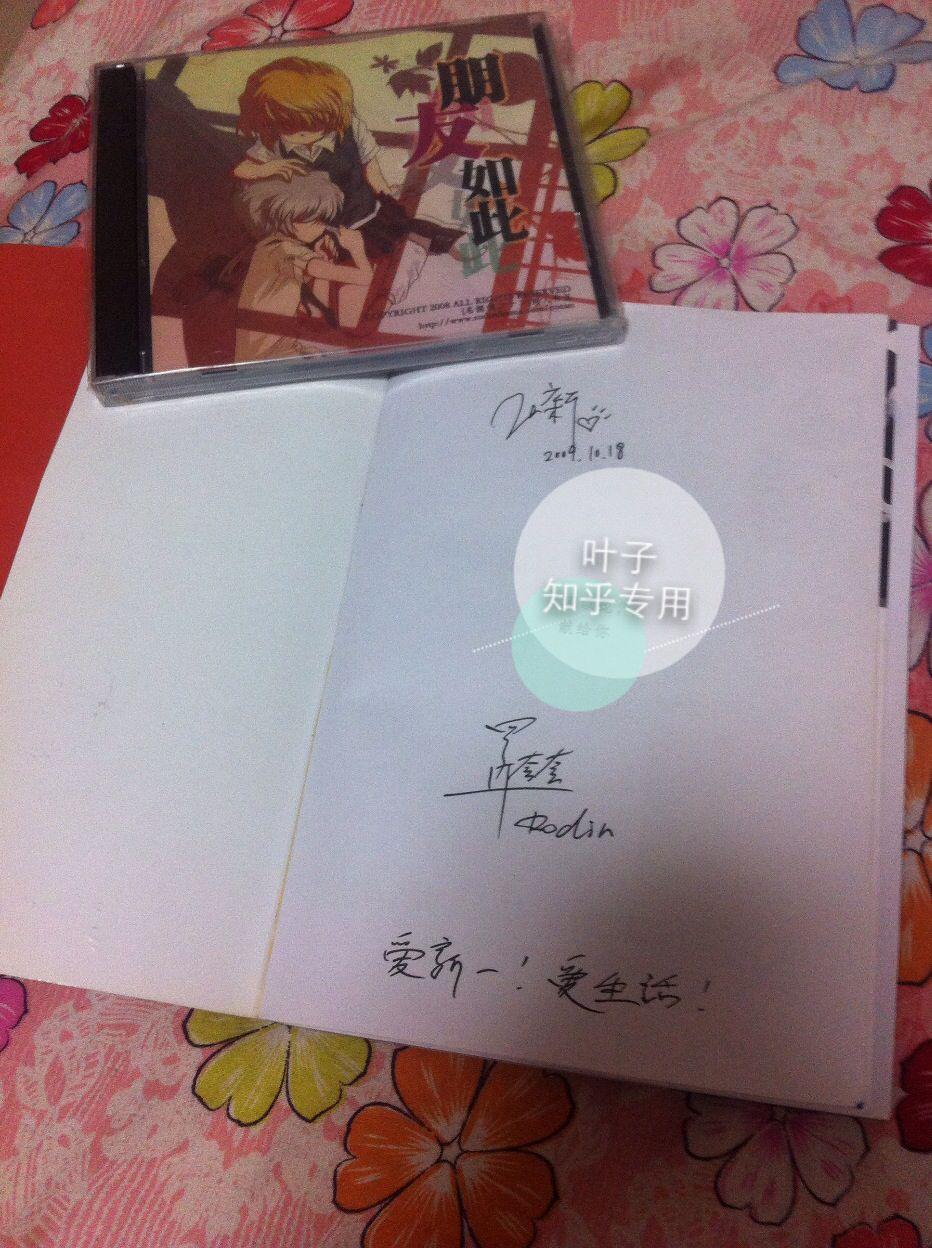 朋
友
如
此
COPYRIGHT 2008 ALL RIGHTS RESERVED
http://www.
新
2009.10.18
叶子
知乎专用
献给你
Rodin
爱新一！爱生活！